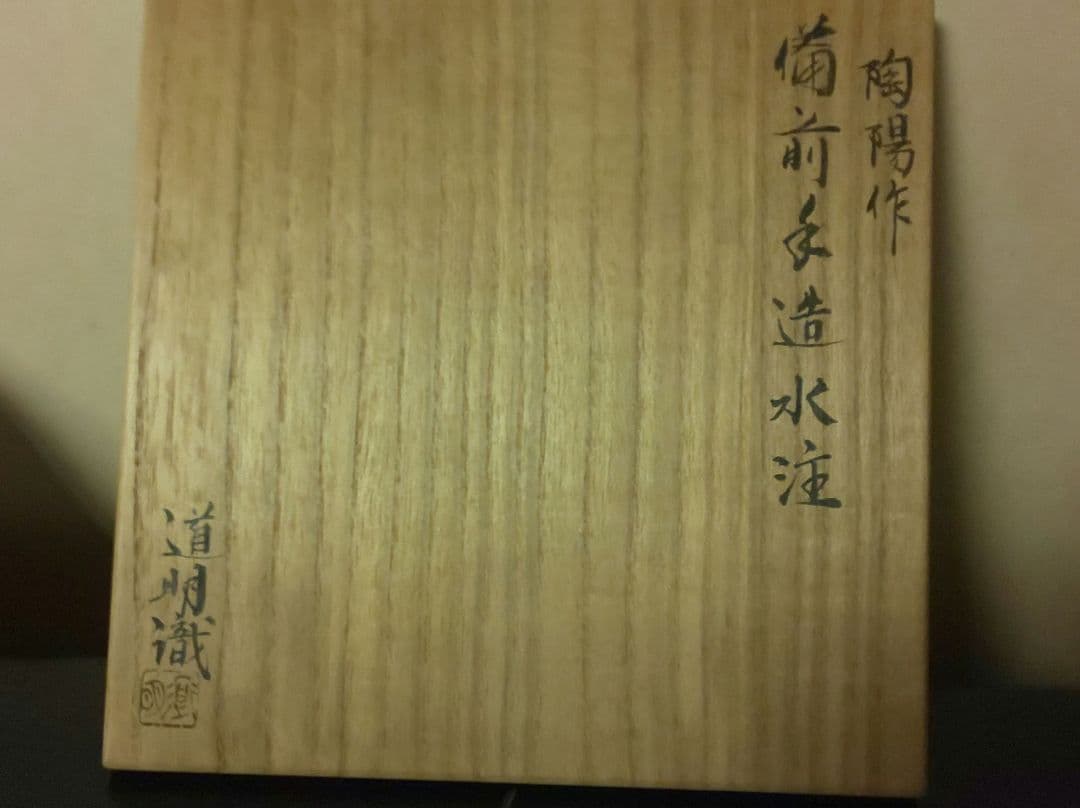 陶陽作
備前手造水注
道明識